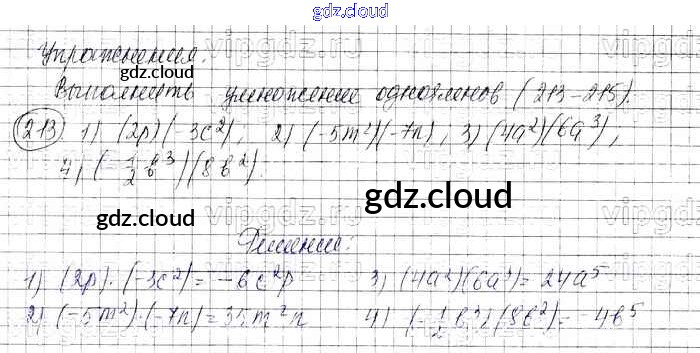 gdz.cloud
vipgdz.ru
Упражнения.
gdz.cloud
Выполнить умножение одночленов (213-215).
213 1) (2p)( 3c²), 2) (-5m²)(-7n), 3) (4a²)(6a³),
4) (-1/2 b³)(8b²).
gdz.cloud gdz.cloud
vipgdz.ru
Решение:
1) (2p)·(-3c²) = -6c²p 3) (4a²)(6a³) = 24a⁵
2) (-5m²)·(-7n) = 35m²n 4) (-1/2 b³)·(8b²) = -4b⁵
gdz.cloud